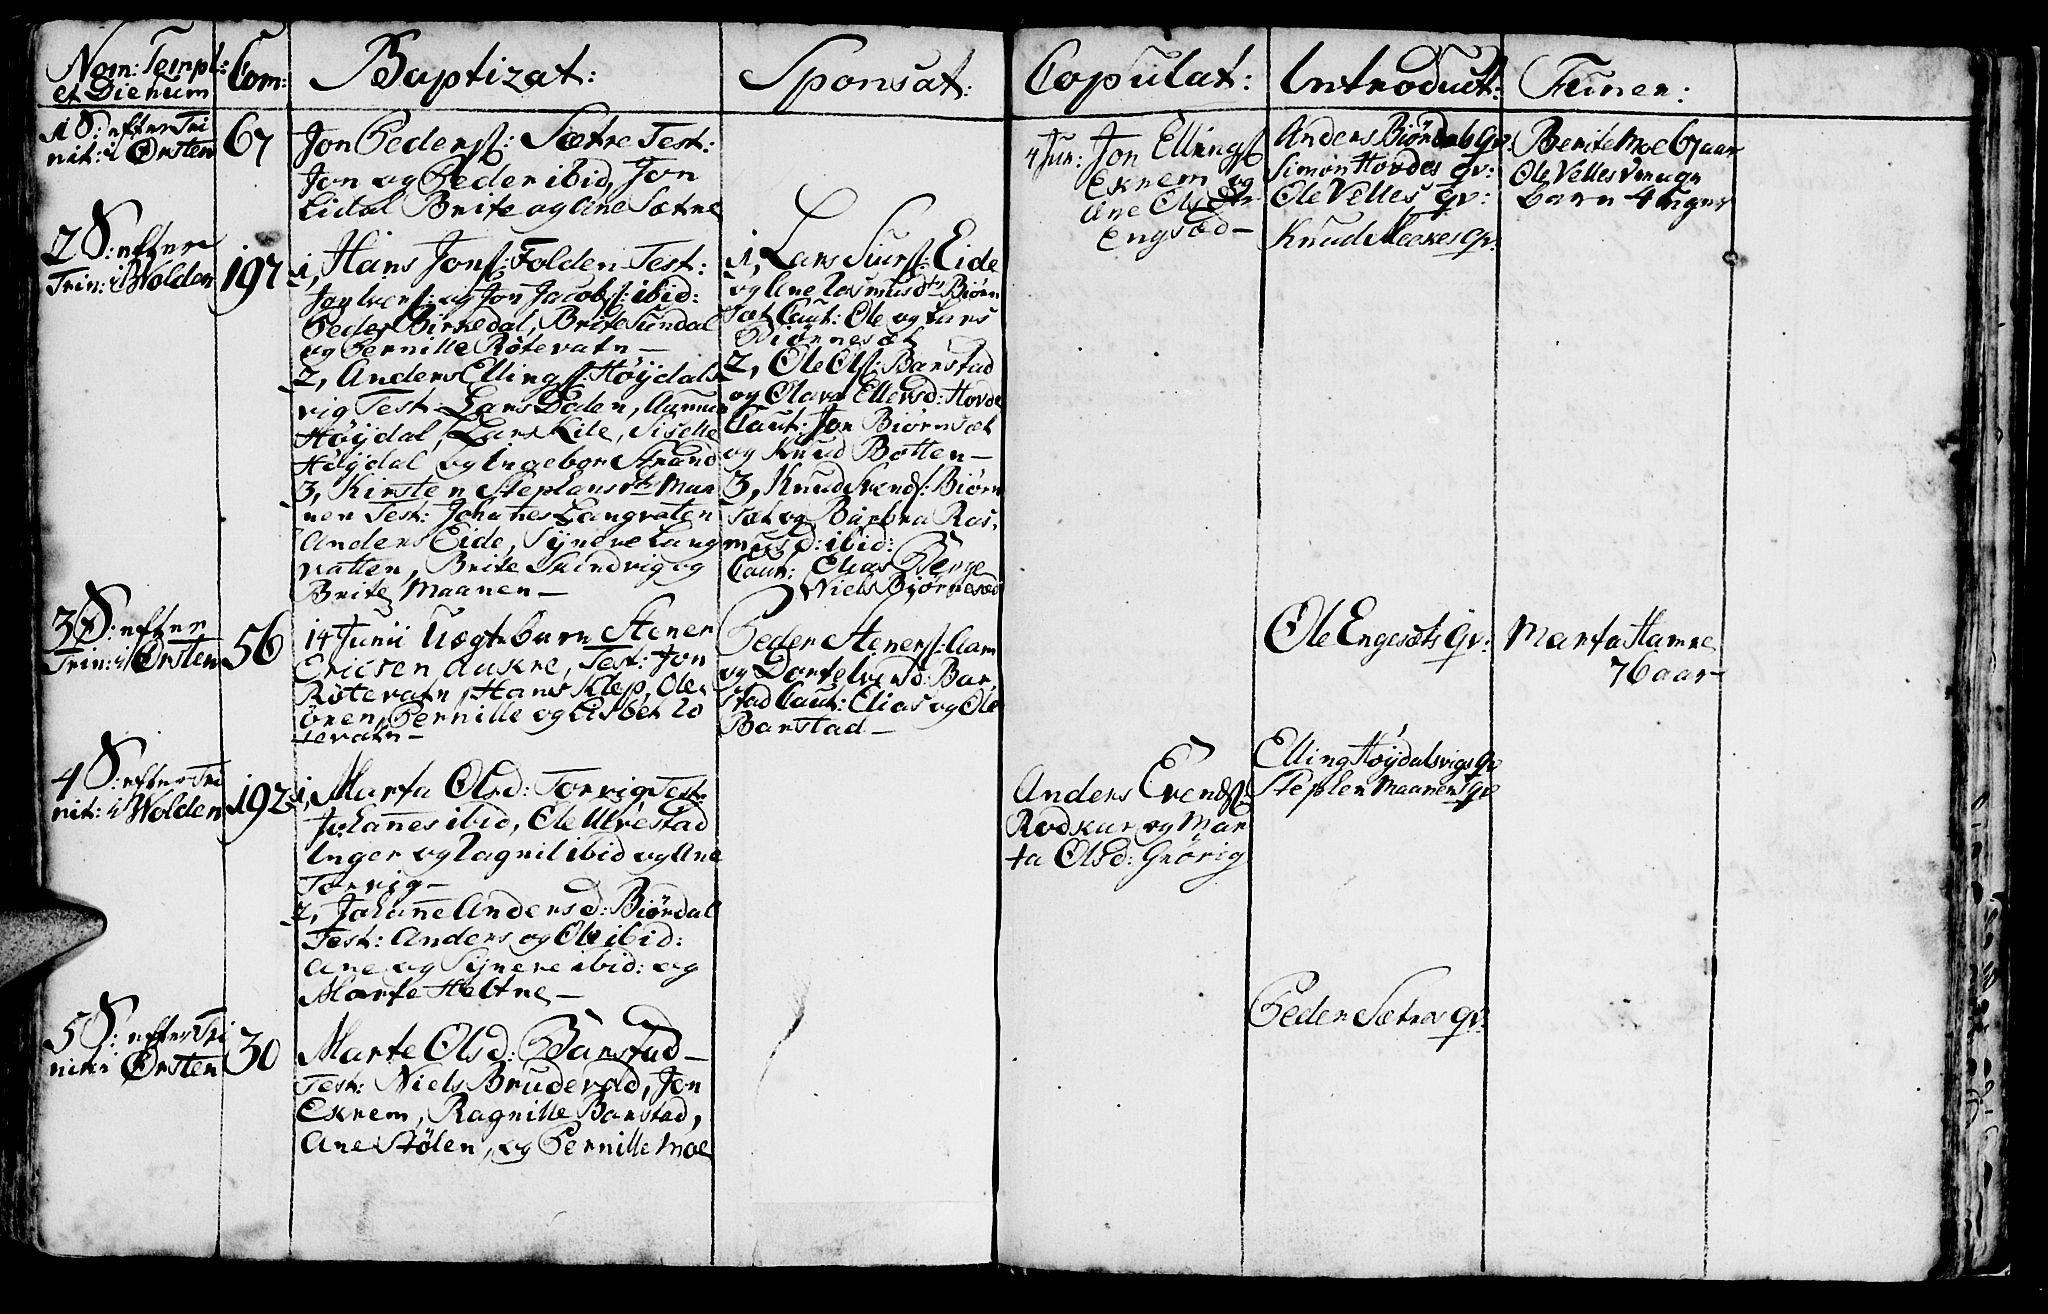 Nom: Templ:
et Dierum
Com:
Baptizat:
Sponsat:
Copulat:
Introduct:
Funer:
1 S: efter Tri
nit: i Ørsten
67
Jon Peders: Sætre Test:
Jon og Peder ibid, Jon
Lidal Brite og Ane Sætre
4 Jun: Jon Ellings
Eknem og
Ane Olsdtr
Engsæd
Anders Biørdals qv:
Simon Hovdes qv:
Ole Velles qv:
Knud qv:
Berite Moe 67 aar
Ole Velles
barn 4 uger
2 S: efter
Trin: i Wolden
197
1, Hans Jons: Folden Test:
Jon Ivers: og Jon Jacobs: ibid:
Peder Birkedal, Brite Sundal
og Pernille Røtevatn
2, Anders Ellings: Høydals
vig Test: Lars Dalen,
Høydal, Lars Kile, Siselle
Høydal og Ingebor Strand
3, Kirsten Stephansdtr Maa
nen Test: Johannes Langvaten
Anders Eide, Synneve Lang
vatten, Brite Skindvig og
Brite Maanen
1, Lars Siurs: Eide
og Ane Rasmusdtr Biørn
sæt Caut: Ole og Lars
Biørnesæt
2, Ole Ols: Barstad
og Olave Ellensd: Hovde
Caut: Jon Biørnsæt
og Knud Botten
3, Knud Svends: Biørn
sæt og Barbra Ras,
musd: ibid:
Caut: Elias Berge
Niels Biørnesæd
3 S: efter
Trin: i Ørsten
56
14 Junii Uægte barn Stener
Ericsen Aukre, Test: Jon
Røtevatn, Hans Klep, Ole
Ören, Pernille og Lisbet Rö
tevatn
Peder Steners: Aam
og Dorte Iversd: Bar
stad Caut: Elias og Ole
Barstad
Ole Engesæts qv:
Marta Hamre
76 aar
4 S: efter Tri
nit: i Wolden
192
1, Marta Olsd: Torvig Test:
Johannes ibid, Ole Ulvestad
Inger og Ragnil ibid og Ane
Torvig
2, Johanne Andersd: Biørdal
Test: Anders og Ole ibid:
Ane og Synneve ibid: og
Marte Heltne
Anders Evends:
Rødskar og Mar
ta Olsd: Grørig
Elling Høydalsvigs qv
Stephen Maanens qv
5 S: efter Tri
nit: i Ørsten
30
Marte Olsd: Barstad
Test: Niels Brudevold, Jon
Eknem, Ragnille Barstad,
Ane Stølen, og Pernille Moe
Peder Sætres qv: